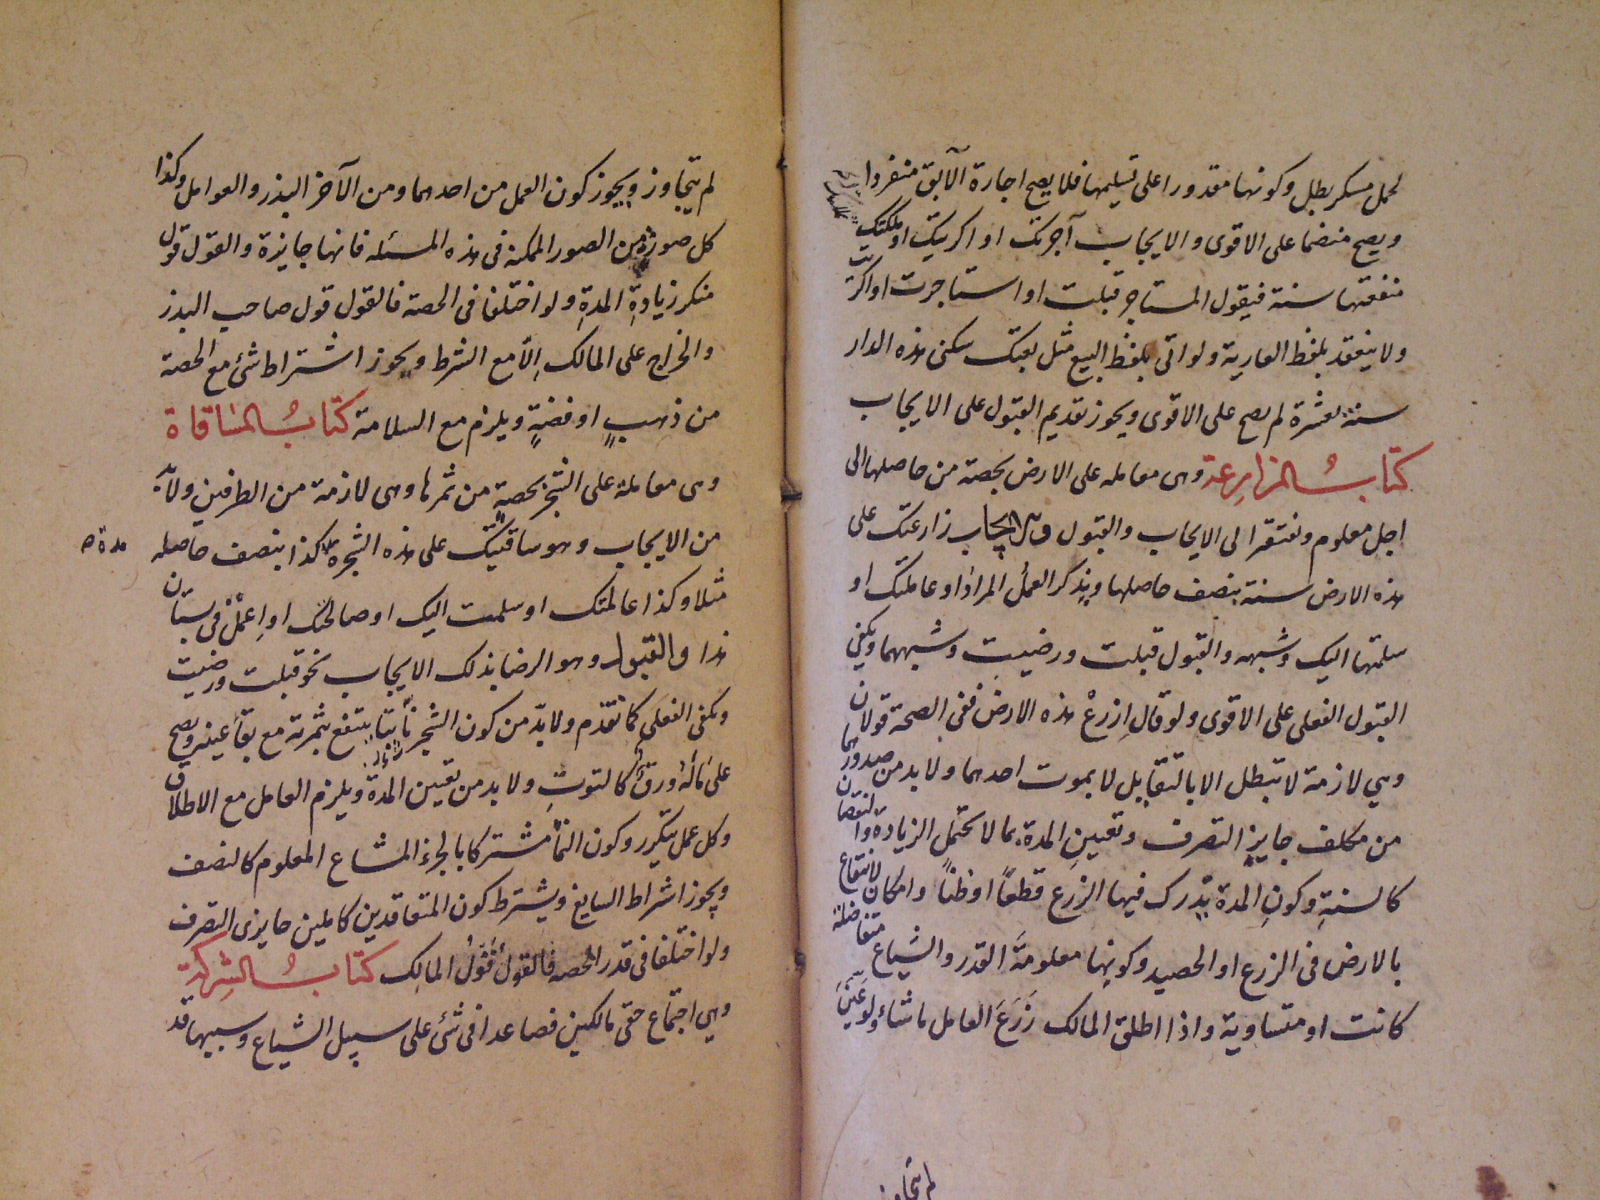 لحمل مسكر بطل وكونها مقدورا على تسليمها فلا يصح اجارة الآبق منفردا
ويصح منضما على الاقوى والايجاب آجرتك او اكريتك او ملكتك
منفعتها سنة فيقول المستاجر قبلت او استاجرت او اكتريت
ولا ينعقد بلفظ العارية ولو اتى بلفظ البيع مثل بعتك سكنى هذه الدار
سنة بعشرة لم يصح على الاقوى ويجوز تقديم القبول على الايجاب
كتاب المزارعة وهى معامله على الارض بحصة من حاصلها الى
اجل معلوم وتفتقر الى الايجاب والقبول فالايجاب زارعتك على
هذه الارض سنة بنصف حاصلها ويذكر العمل المراد او عاملتك او
سلمتها اليك وشبهه والقبول قبلت ورضيت وشبههما ويكفي
القبول الفعلى على الاقوى ولو قال ازرع هذه الارض ففى الصحة قولان
وهي لازمة لا تبطل الا بالتقايل لا بموت احدهما ولا بد من صدورها
من مكلف جايز التصرف وتعيين المدة بما لا يحتمل الزيادة والنقصان
كالسنة وكون المدة يدرك فيها الزرع قطعا او ظنا وامكان الانتفاع
بالارض فى الزرع او الحصيد وكونها معلومة القدر والشياع متفاضلة
كانت او متساوية واذا اطلق المالك زرع العامل ما شاء ولو عين
لم يتجاوز
لم يتجاوز ويجوز كون العمل من احدهما ومن الآخر البذر والعوامل وكذا
كل صورة من الصور الممكنة فى هذه المسئله فانها جايزة والقول قول
منكر زيادة المدة ولو اختلفا فى الحصة فالقول قول صاحب البذر
والخراج على المالك الا مع الشرط ويجوز اشتراط شئ مع الحصة
من ذهب او فضة ويلزم مع السلامة كتاب المساقاة
وهى معاملة على الشجر بحصة من ثمرها وهى لازمة من الطرفين ولا بد
من الايجاب وهو ساقيتك على هذه الشجرة كذا بنصف حاصله
مدة صح
مثلا وكذا عاملتك او سلمت اليك او صالحتك او اعمل فى بستان
هذا والقبول وهو الرضا بذلك الايجاب نحو قبلت ورضيت
ويكفى الفعلى كما تقدم ولا بد من كون الشجر نابتا ينتفع بثمرته مع بقاء عينه ويصح
على ماله ورق كالتوت ولا بد من تعيين المدة ويلزم العامل مع الاطلاق
وكل عمل يتكرر وكون النماء مشتركا بالجزء المشاع المعلوم كالنصف
ويجوز اشتراط السايغ ويشترط كون المتعاقدين كاملين جايزى التصرف
ولو اختلفا فى قدر الحصه فالقول قول المالك كتاب الشركة
وهي اجتماع حقى مالكين فصاعدا فى شئ على سبيل الشياع وسببها قد